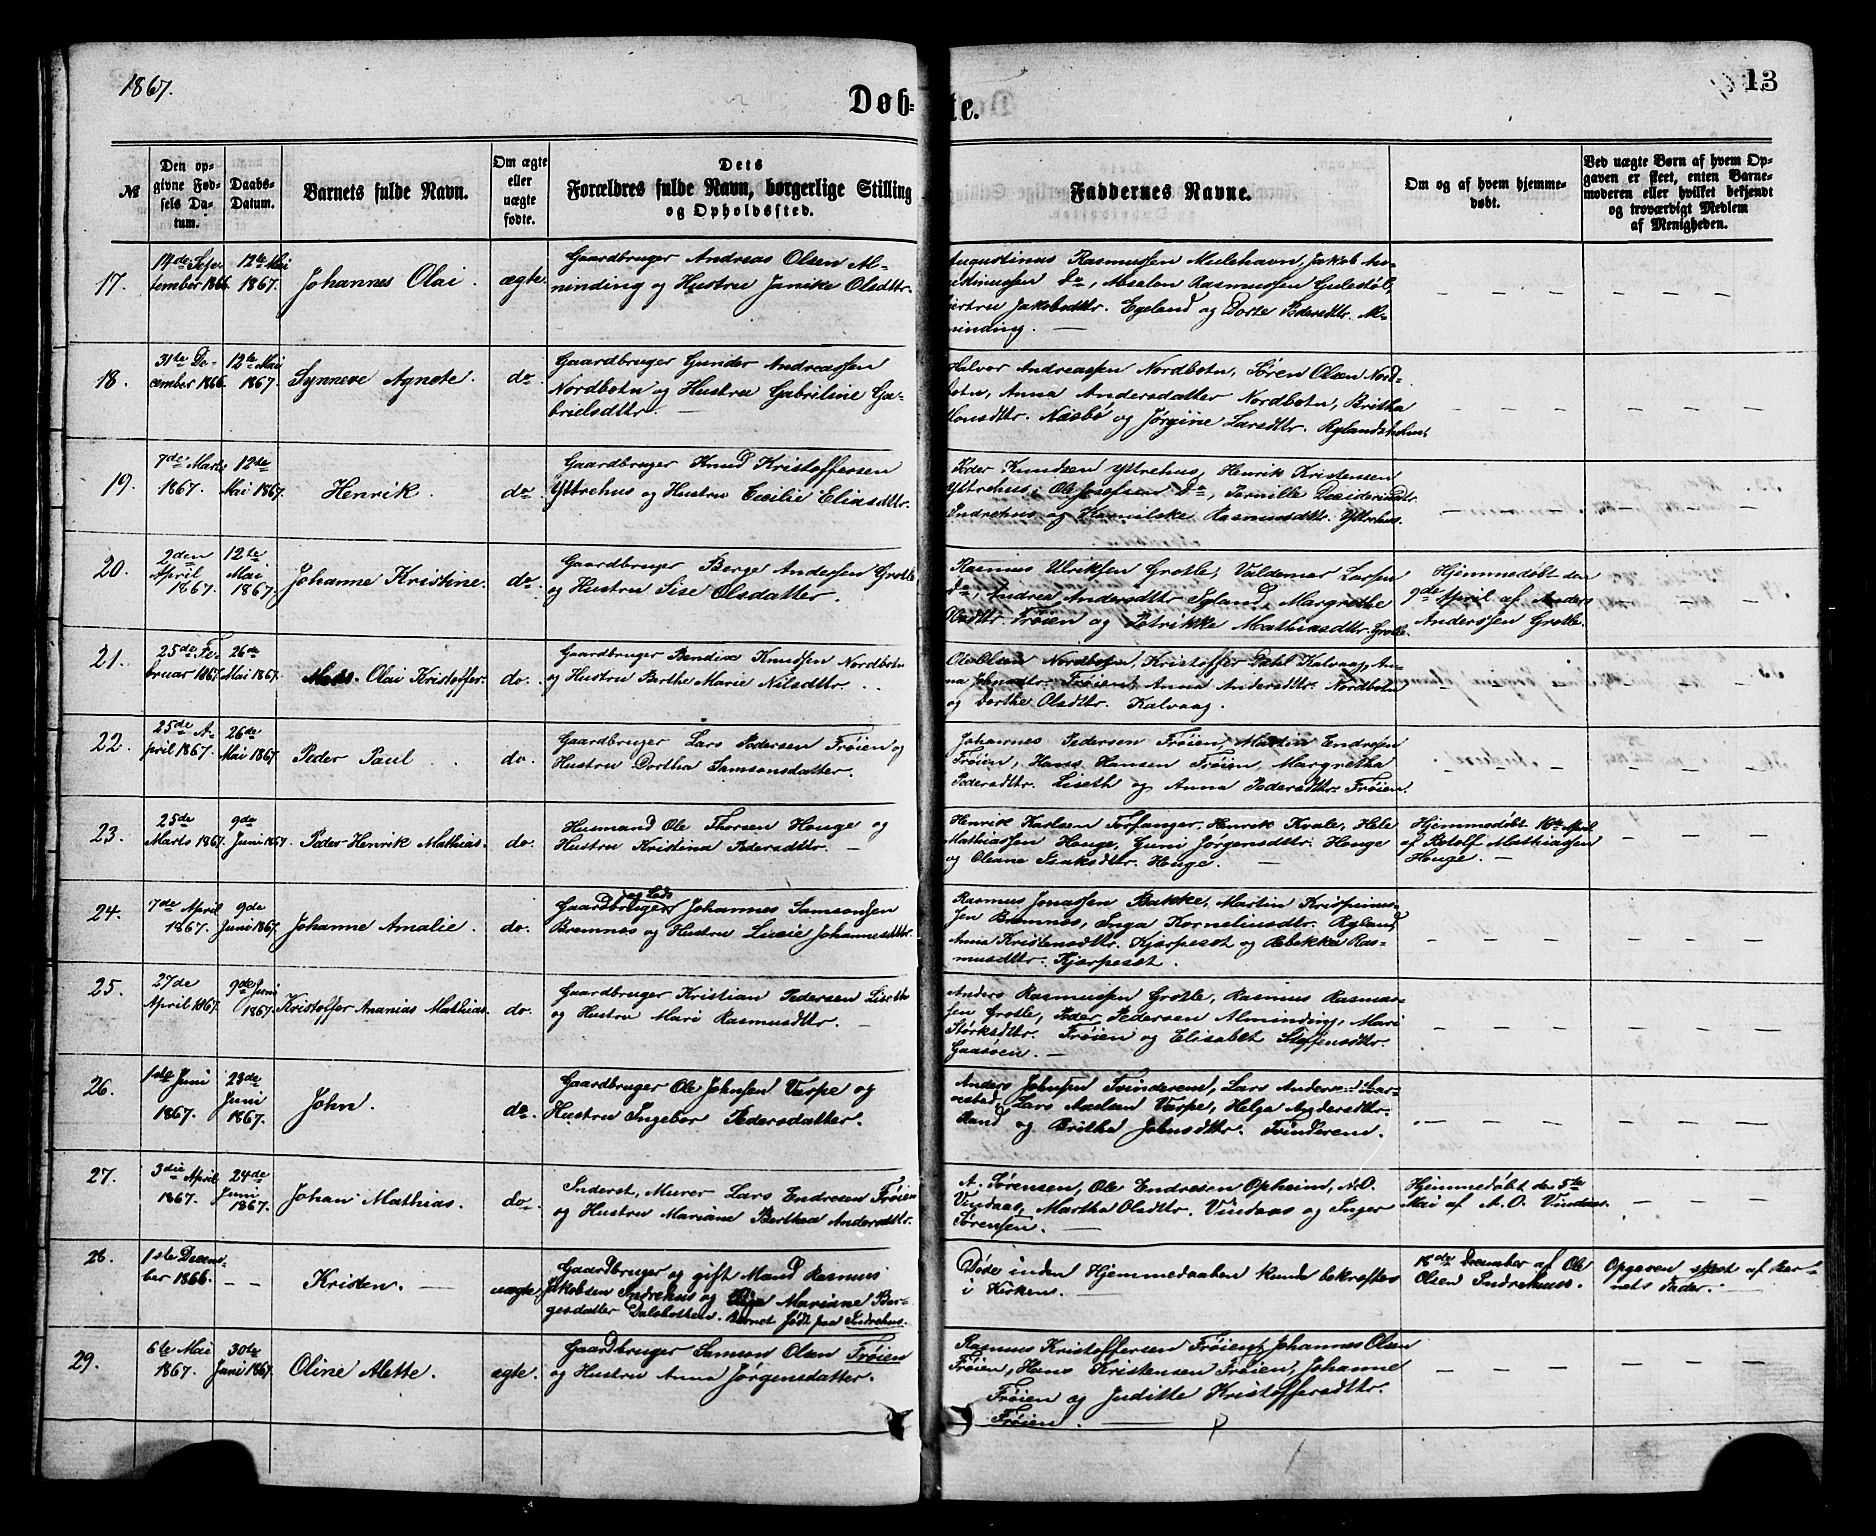 1867.
13
Døbte.
№
Den opgivne Fødsels Datum.
Daabs-Datum.
Barnets fulde Navn.
Om ægte eller uægte fødte.
Dets Forældres fulde Navn, borgerlige Stilling og Opholdssted.
Faddernes Navne.
Om og af hvem hjemmedøbt.
Ved uægte Børn af hvem Opgaven er skeet, enten Barnemoderen eller hvilket bekjendt og troværdigt Medlem af Menigheden.
17.
Septembe­r 1866
12te Mai
1867.
Johannes Olai
ægte.
Gaardbruger Andreas Olsen Al-
minding og Hustru Janike Olsdttr.
Augustinus Rasmussen Mulehavn, Jakob Au-
gustinussen Do, Absalon Rasmussen Gulestøl,
Jakobsdttr. Egeland og Dorte Pedersdttr. Al-
minding. —
18.
31te De-
cember 1866.
12te Mai
1867.
Synneve Agnete.
do.
Gaardbruger Gunder Andreassen
Nordbotn og Hustru Gabriline Ga-
brielsdttr. —
Halvor Andreassen Nordbotn, Søren Olsen Nord-
botn, Anna Andersdatter Nordbotn, Britha
Monsdttr. Næsbø og Jørgine Larsdttr. Rylandsholm.
19.
7de Marts
1867.
12de
Mai 1867.
Henrik.
do.
Gaardbruger Knud Kristoffersen
Yttrehus og Hustru Cecilie Eliasdttr.
Peder Knudsen Yttrehus, Henrik Kristensen
Yttrehus, Ole Josefsen Do, Pernille Desideriusdttr.
Indrehus og Rasmusdttr. Yttrehus.
20.
2den
April
1867.
12te
Mai
1867.
Johanne Kristine.
do.
Gaardbruger Berge Andersen Grotle
og Hustru Sise Olsdatter.
Rasmus Ulriksen Grotle, Valdemar Larsen
Do, Andrea Andersdttr Igland, Margrethe
Olsdttr Frøien og Petrikke Mathiasdttr. Grotle.
Hjemmedøbt den
9de April af Anders
Anderssen Grotle.
21.
25de Fe-
bruar 1867.
26de
Mai 1867.
Mads. Olai Kristoffer.
do.
Gaardbruger Bendix Knudsen Nordbotn
og Hustru Berthe Marie Nilsdttr.
Ole Olsen Nordbotn, Kristoffer Dahl Kalvaag, An-
na Johnsdttr. Frøien, Anna Andersdttr. Nordbotn
og Dorthe Olsdttr. Kalvaag.
22.
25de A-
pril 1867.
26de
Mai 1867.
Peder Paul
do.
Gaardbruger Lars Pedersen Frøien og
Hustru Dortha Samsonsdatter.
Johannes Pedersen Frøien, Martin Endresen
Frøien, Hans Hansen Frøien, Margretha
Pedersdttr. Liseth og Anna Pedersdttr. Frøien.
23.
25de
Marts 1867.
9de
Juni 1867.
Peder Henrik Mathias.
do.
Husmand Ole Thorsen Houge og
Hustru Kristina Pedersdttr. —
Henrik Karlsen Torfanger, Henrik Kvale, Hele
Mathiassen Houge, Guni Jørgensdttr. Houge
og Oleana Isaksdttr. Houge. —
Hjemmedøbt 16te April
af Botolf Mathiassen
Houge. —
24.
7de April
1867.
9de
Juni 1867.
Johanne Amalie.
do.
og Lods
Gaardbruger Johannes Samsonsen
Bremnes og Hustru Lucie Johannesdttr.
Rasmus Jonassen Bakke, Martin Krispinus-
sen Bremnes, Inga Kornelius­dttr. Ryland,
Anna Kristensdttr. Kjørpeset og Rebekka Ras-
musdttr. Kjørpeset.
25.
27de
April 1867.
9de Juni
1867.
Kristoffer Ananias Mathias.
do.
Gaardbruger Kristian Pedersen Liseth
og Hustru Mari Rasmusdttr. —
Anders Rasmussen Grotle, Rasmus Rasmus-
sen Grotle, Peder Pedersen Alminding, Mari
Størksdttr. Frøien og Elisabet Steffensdttr.
Gaasøen. —
26.
1ste Juni
1867.
23de
Juni
1867.
John.
do.
Gaardbruger Ole Johnsen Varpe og
Hustru Ingebor Pedersdatter.
Anders Johnsen Tvinderem, Lars Anders
Lars Axelsen Varpe, Helga Andersdttr.
Rand og Britha Johnsdttr. Tvinderem.
27.
3die April
1867.
24de
Juni
1867.
Johan Mathias.
do.
Inderst, Murer Lars Endresen Frøien
og Hustru Mariane Berthea Andersdttr.
A. Sørensen, Ole Endresen Opheim, A. O.
Vindaas, Martha Olsdttr. Vindaas og Inger
Sørensen. —
Hjemmedøbt den 5te
Mai af A. O. Vindaas.
28.
1ste Decem-
ber 1866.
Kristen. —
uægte
Gaardbruger og gift Mand Rasmus
Jakobsen Indrehus og Pige Mariane Ber-
gesdatter Dalsbotten. Barnet født paa Indrehus.
Døde inden Hjemmedaaben kunde bekræftes
i Kirken. —
18de December af Ole
Olsen Indrehuus.
Opgaven skeet af Bar-
nets Fader. —
29.
6te Mai
1867.
30te
Juni 1867.
Oline Alette.
ægte.
Gaardbruger Samson Olsen Frøien
og Hustru Anna Jørgensdatter.
Rasmus Kristoffersen Frøien, Johannes Olsen
Frøien, Hans Kristensen Frøien, Johanne
Frøien og Juditte Kristoffersdttr.
Frøien. —